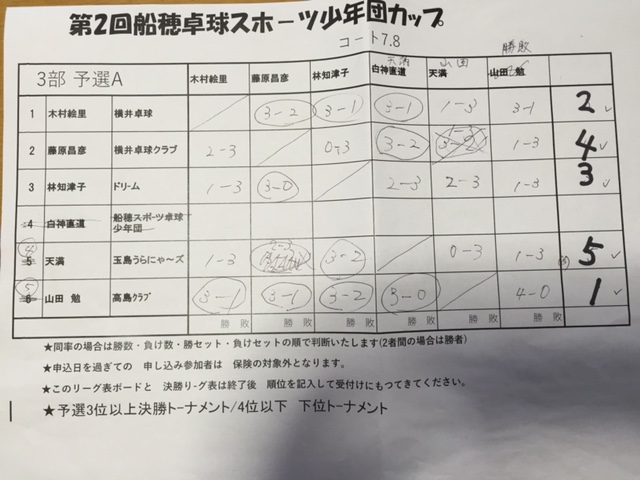 第2回船穂卓球スポーツ少年団カップ
コート7.8
勝敗
3部 予選A 木村絵里 藤原昌彦 林知津子 白神直道 天満 天満 山田 山田 勉
1 木村絵里 横井卓球 3-2 3-1 3-1 1-3 3-1 2
2 藤原昌彦 横井卓球クラブ 2-3 0-3 3-2 1-3 3-2 1-3 4
3 林知津子 ドリーム 1-3 3-0 2-3 2-3 1-3 3
4 白神直道 船穂スポーツ卓球
少年団
4 5 天満 玉島うらにゃ~ズ 1-3 2-3 3-2 0-3 1-3 5
5 6 山田 勉 高島クラブ 3-1 3-1 3-2 3-0 4-0 1
勝 敗 勝 敗 勝 敗 勝 敗 勝 敗 勝 敗
★同率の場合は勝数・負け数・勝セット・負けセットの順で判断いたします(2者間の場合は勝者)
★申込日を過ぎての 申し込み参加者は 保険の対象外となります。
★このリーグ表ボードと 決勝リーグ表は終了後 順位を記入して受付けにもってきてください。
★予選3位以上決勝トーナメント/4位以下 下位トーナメント